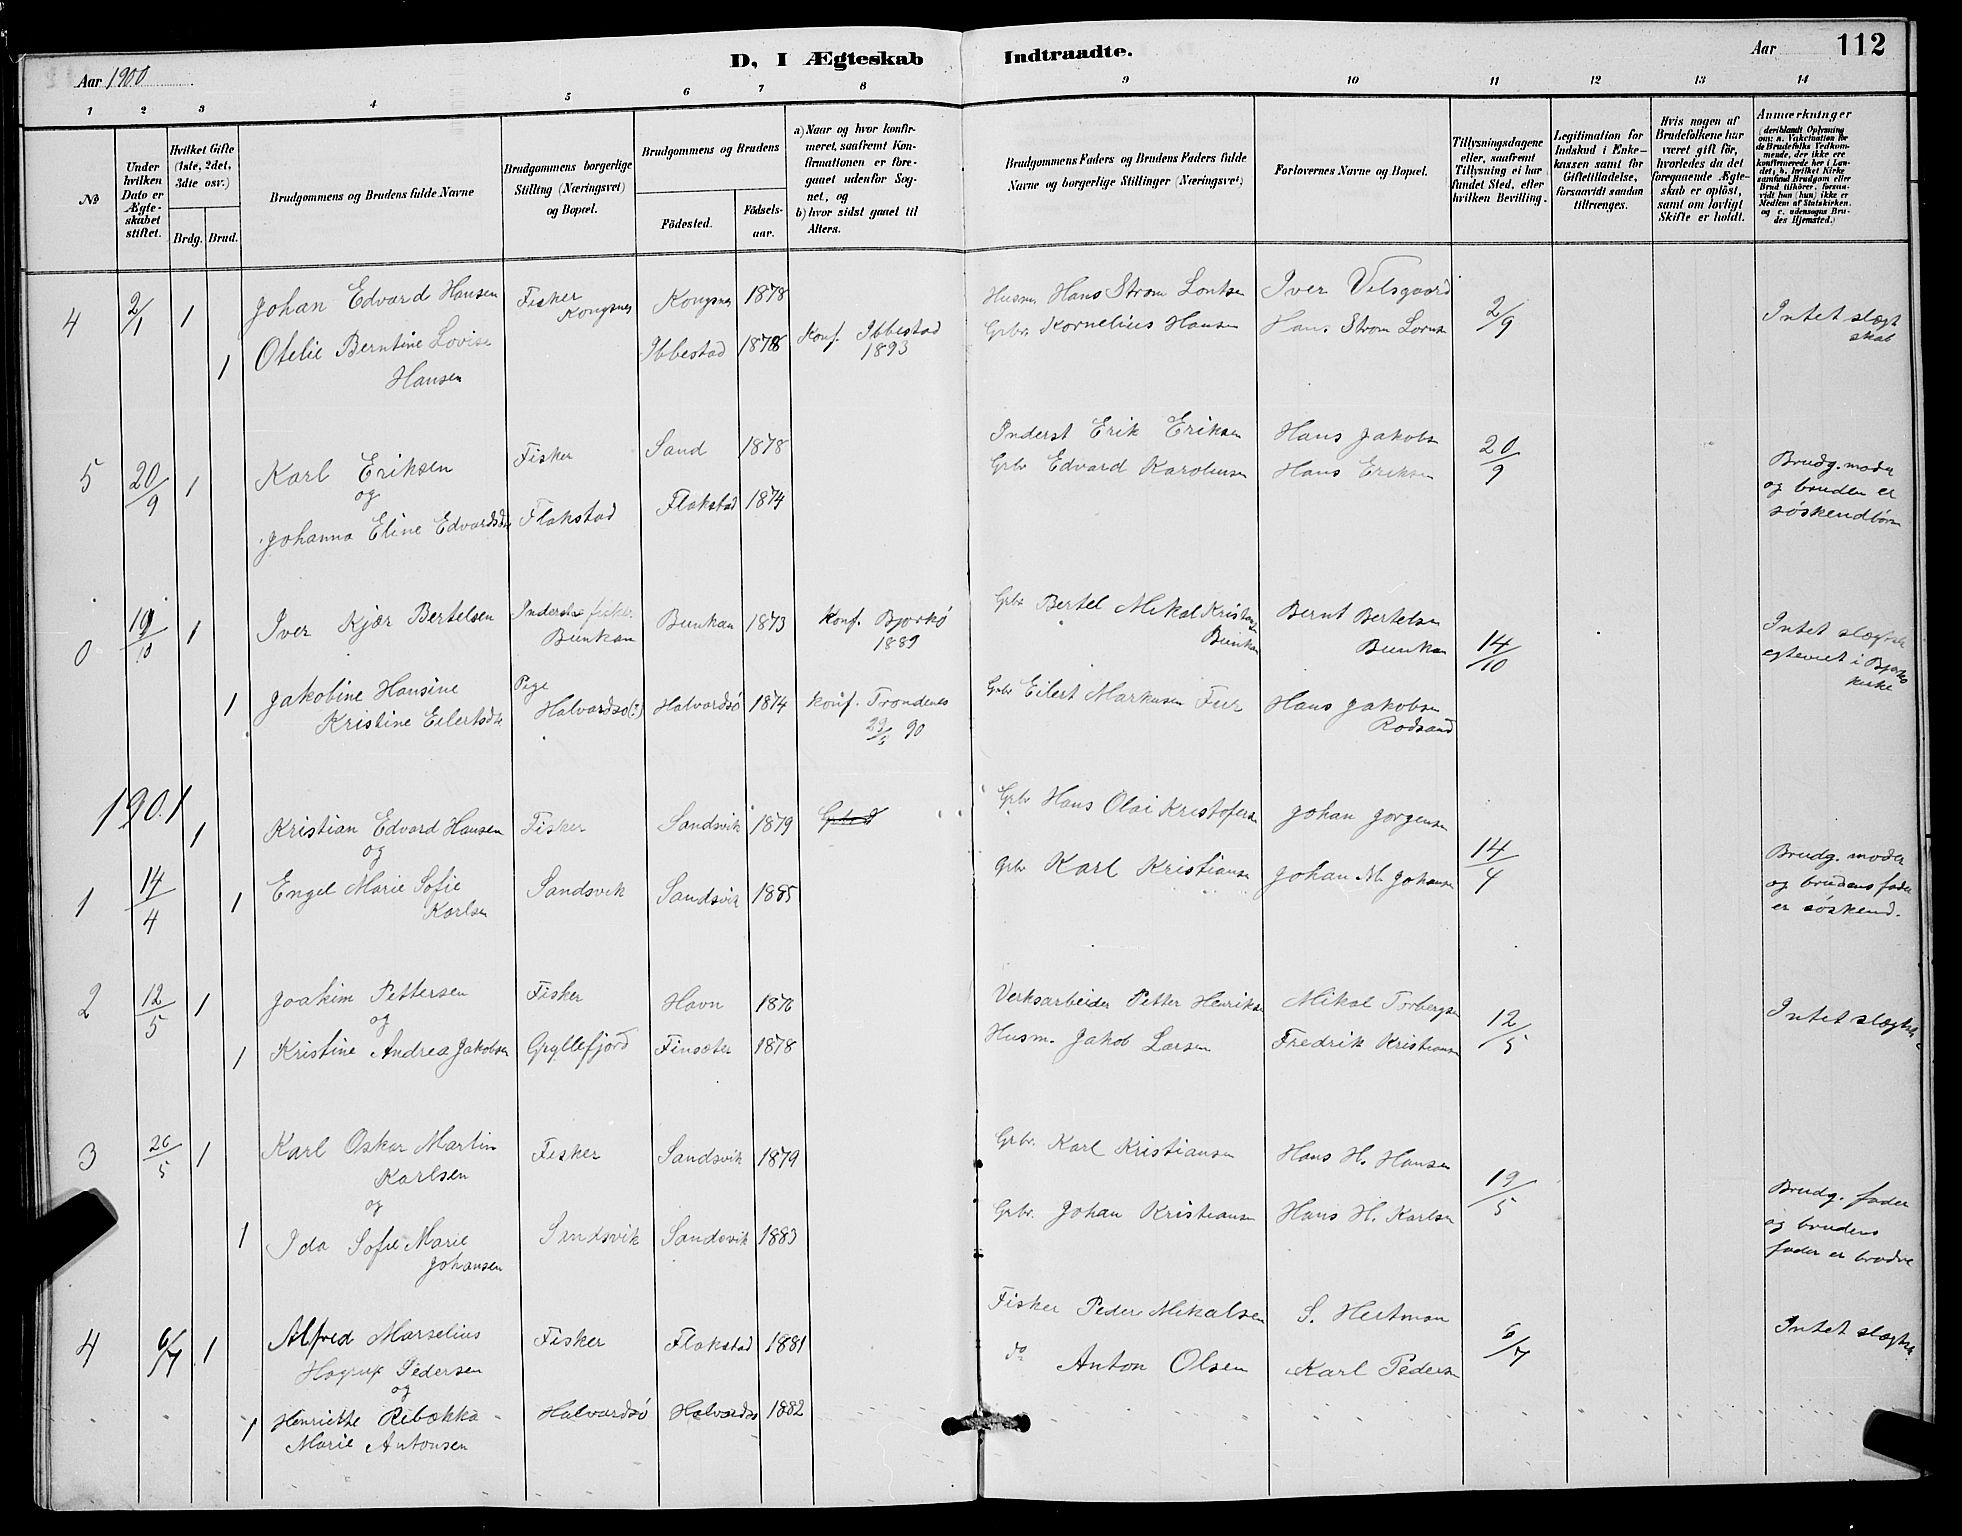 D, I Ægteskab Indtraadte. Aar 112
Aar 1900
1 2 3 4 5 6 7 8 9 10 11 12 13 14
No
Under hvilken Dato er Ægteskabet stiftet.
Hvilket Gifte (1ste, 2det, 3dte osv.)
Brdg. Brud.
Brudgommens og Brudens fulde Navne
Brudgommens borgerlige Stilling (Næringsvei) og Bopæl.
Brudgommens og Brudens
Födested. Födselsaar.
a) Naar og hvor konfirmeret, saafremt Konfirmationen er foregaaet udenfor Sognet, og
b) hvor sidst gaaet til Alters.
Brudgommens Faders og Brudens Faders fulde Navne og borgerlige Stillinger (Næringsvei)
Forlovernes Navne og Bopæl.
Tillysningsdagene eller, saafremt Tillysning ei har fundet Sted, efter hvilken Bevilling.
Legitimation for Indskud i Enkekassen samt for Giftetilladelse, forsaavidt saadan tiltrænges.
Hvis nogen af Brudefolkene har været gift för, hvorledes da det foregaaende Ægteskab er oplöst, samt om lovligt Skifte er holdt.
Anmærkninger
(deriblandt Oplysning om: a. Vakcination for de Brudefolks Vedkommende, der ikke ere konfirmerede her i Landet; b. hvilket Kirkesamfund Brudgom eller Brud tilhörer, forsaavidt han (hun) ikke er Medlem af Statskirken. og c. udensogns Brudes Hjemsted.)
4 2/1 1 Johan Edvard Hansen Fisker Kongsnes Kongsnes 1878 Husm Hans Strøm Iver 2/9 Intet slægtskab
1 Otelie Berntine Lovise Hansen Ibbestad 1878 Konf. Ibbestad 1893 Grbr Kornelius Hansen Hans Strøm
5 20/9 1 Karl Eriksen Fisker Sand 1878 Inderst Erik Eriksen Hans Jakobs 20/9 Brudg. moder og bruden er söskendbörn
og
Johanna Eline Edvardsd Flakstad Flakstad 1874 Grbr Edvard Karolius Hans Eriksen
/10 1 Iver Kjær Bertelsen Inderst fisker Bunkan Bunkan 1873 Konf. Bjarkö 1889 Grbr Bertel Mikal Kristans Bunkan Bernt Bertelsen Bunkan 14/10 Intet slægtsk egteviet i Bjarkö kirke
1 Jakobine Hansine Kristine Eilertsdt Pige Halvardsö(?) Halvardsö 1874 Konf. Trondenes 90 Grbr Eilert Markusen Hans Jakobsen Rödsand
1901
1 14/4 1 Kristian Edvard Hansen Fisker Sandsvik 1879 Grbr Hans Olai Kristofersen Johan Jörgensen 14/4 Brudg. moder og brudens fader er söskend.
og
1 Engel Marie Sofie Karlsen Sandsvik Sandsvik 1885 Grbr Karl Kristiansen Johan M. Johansen
2 12/5 1 Joakim Pettersen Fisker Havn 1876 Verksarbeider Petter Henriksen Mikal Torbergsen 12/5 Intet slægtsk
og
1 Kristine Andrea Jakobsen Gryllefjord Finsæter 1878 Husm. Jakob Larsen Fredrik Kristiansen
3 26/5 1 Karl Oskar Martin Karlsen Fisker Sandsvik 1879 Grbr. Karl Kristiansen Hans H. Hansen 19/5 Brudg. fader og brudens fader er brödre
og
1 Ida Sofie Marie Johansen Sandsvik Sandsvik 1883 Grbr. Johan Kristiansen Hans H. Karlsen
4 6/7 1 Alfred Marselius Hagrup Pedersen Fisker Flakstad 1881 Fisker Peder Mikalsen S. Hertman 6/7 Intet slægtsk.
og
1 Henriette Rebekka Marie Antonsen Halvardsö Halvardsö 1882 do Anton Olsen Karl Peders